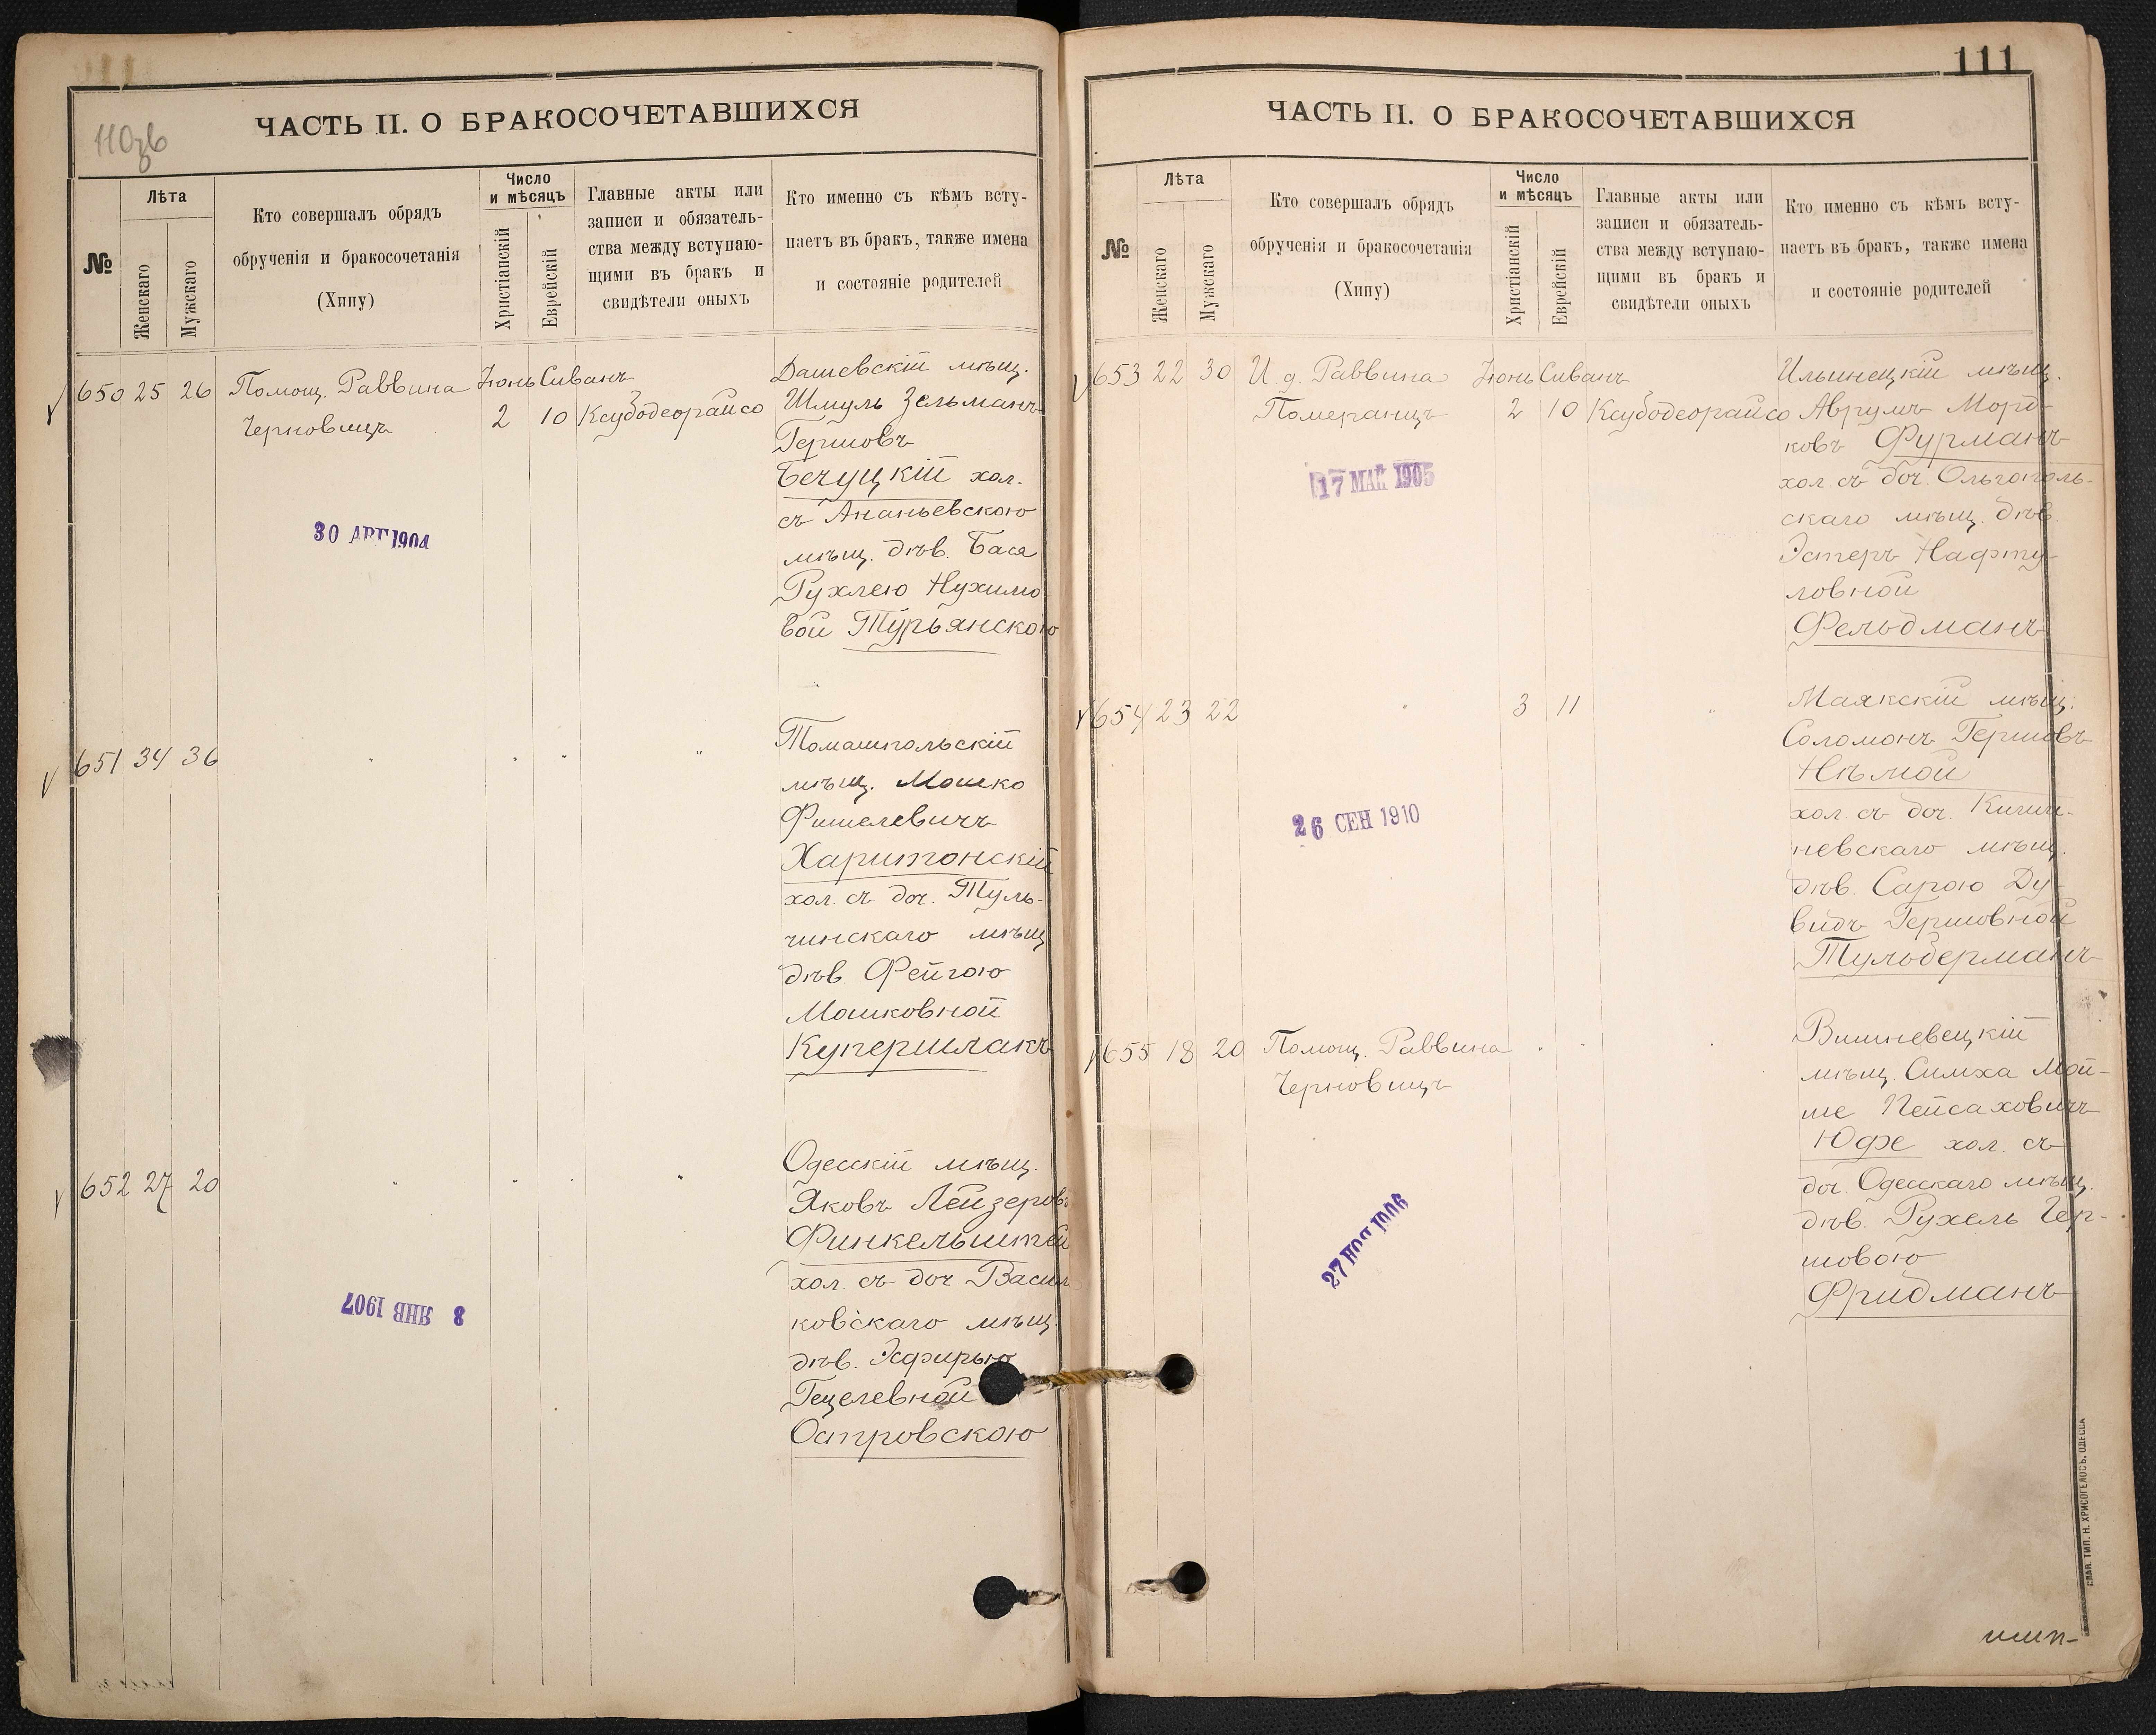 110об
ЧАСТЬ II. О БРАКОСОЧЕТАВШИХСЯ
№
Лѣта
Женскаго
Мужскаго
Кто совершалъ обрядъ
обрученія и бракосочетанія
(Хипу)
Число
и мѣсяцъ
Христіанскій
Еврейскій
Главные акты или
записи и обязатель-
ства между вступаю-
щими въ бракъ и
свидѣтели оныхъ
Кто именно съ кѣмъ всту-
паетъ въ бракъ, также имена
и состояніе родителей
650 25 26 Помощ. Раввина Іюнь Сиванъ
Черновицъ 2 10 Ксубодеорайсо
Дашевскій мѣщ.
Шмуль Зельманъ
Гершовъ
Бечуцкій хол.
съ Ананьевскою
мѣщ. дѣв. Бася
Рухлею Нухимо
вой Турьянскою
30 АВГ 1904
651 34 36 " " " "
Томашпольскій
мѣщ. Мошко
Фишелевичъ
Харитонскій
хол. съ доч. Туль-
чинскаго мѣщ
дѣв. Фейгою
Мошковной
Купершлакъ
652 27 20 " " " "
Одесскій мѣщ.
Яковъ Лейзеровъ
Финкельштей
хол. съ доч. Васил
ковскаго мѣщ.
дѣв. Эсфирью
Гецелевной
Островскою
8 ЯНВ 1907
111
ЧАСТЬ II. О БРАКОСОЧЕТАВШИХСЯ
№
Лѣта
Женскаго
Мужскаго
Кто совершалъ обрядъ
обрученія и бракосочетанія
(Хипу)
Число
и мѣсяцъ
Христіанскій
Еврейскій
Главные акты или
записи и обязатель-
ства между вступаю-
щими въ бракъ и
свидѣтели оныхъ
Кто именно съ кѣмъ всту-
паетъ въ бракъ, также имена
и состояніе родителей
653 22 30 И. д. Раввина Іюнь Сиванъ
Померанцъ 2 10 Ксубодеорайсо
Ильинецкій мѣщ.
Аврумъ Морд-
ковъ Фурманъ
хол. съ доч. Ольгополь-
скаго мѣщ. дѣв.
Эстеръ Нафту-
ловной
Фельдманъ
17 МАЙ 1905
654 23 22 " 3 11 "
Маякскій мѣщ.
Соломонъ Гершовъ
Нѣмой
хол. съ доч. Киши-
невскаго мѣщ.
дѣв. Сарою Ду-
видъ Гершовной
Тульберманъ
26 СЕН 1910
655 18 20 Помощ. Раввина " " "
Черновицъ
Вишневецкій
мѣщ. Симха Мой-
ше Пейсаховичъ
Юфе хол. съ
доч. Одесскаго мѣщ.
дѣв. Рухель Гер-
шовою
Фридманъ
27 НОЯ 1906
СЛАВ. ТИП. Н. ХРИСОГЕЛОСЪ. ОДЕССА